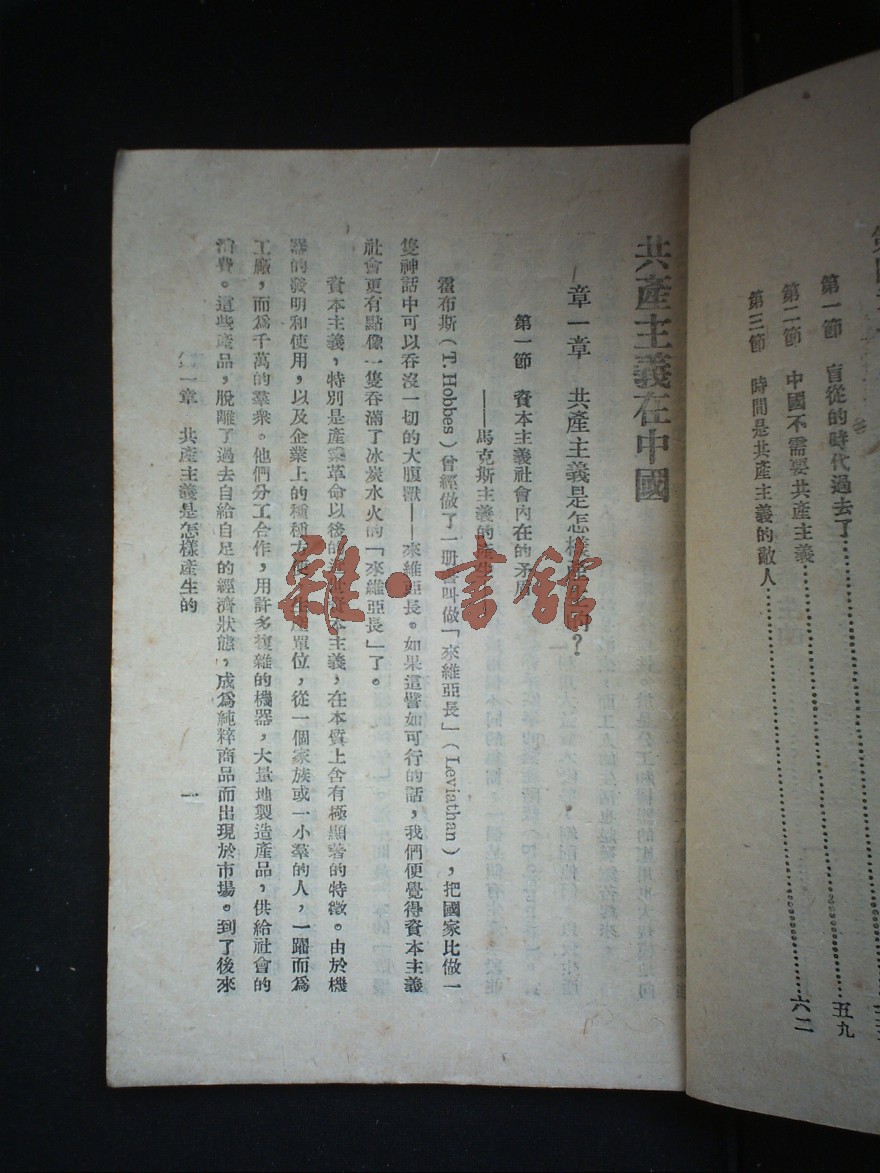 第一節 盲從的時代過去了
第二節 中國不需要共產主義……五九
第三節 時間是共產主義的敵人……六二
共產主義在中國
章一章 共產主義是怎樣產生的?
第一節 資本主義社會內在的矛盾
——馬克斯主義的產生
霍布斯(T. Hobbes)曾經做了一册書叫做「來維亞長」(Leviathan),把國家比做一
隻神話中可以吞沒一切的大腹獸——來維亞長。如果這譬如可行的話,我們便覺得資本主義
社會更有點像一隻吞滿了冰炭水火的「來維亞長」了。
資本主義,特別是產業革命以後的資本主義,在本質上含有極顯著的特徵。由於機
器的發明和使用,以及企業上的種種方便,生產單位,從一個家族或一小羣的人,一躍而爲
工廠,而爲千萬的羣衆。他們分工合作,用許多複雜的機器,大量地製造產品,供給社會的
消費。這些產品,脫離了過去自給自足的經濟狀態,成爲純粹商品而出現於市場。到了後來
第一章 共產主義是怎樣產生的
一
雜·書館